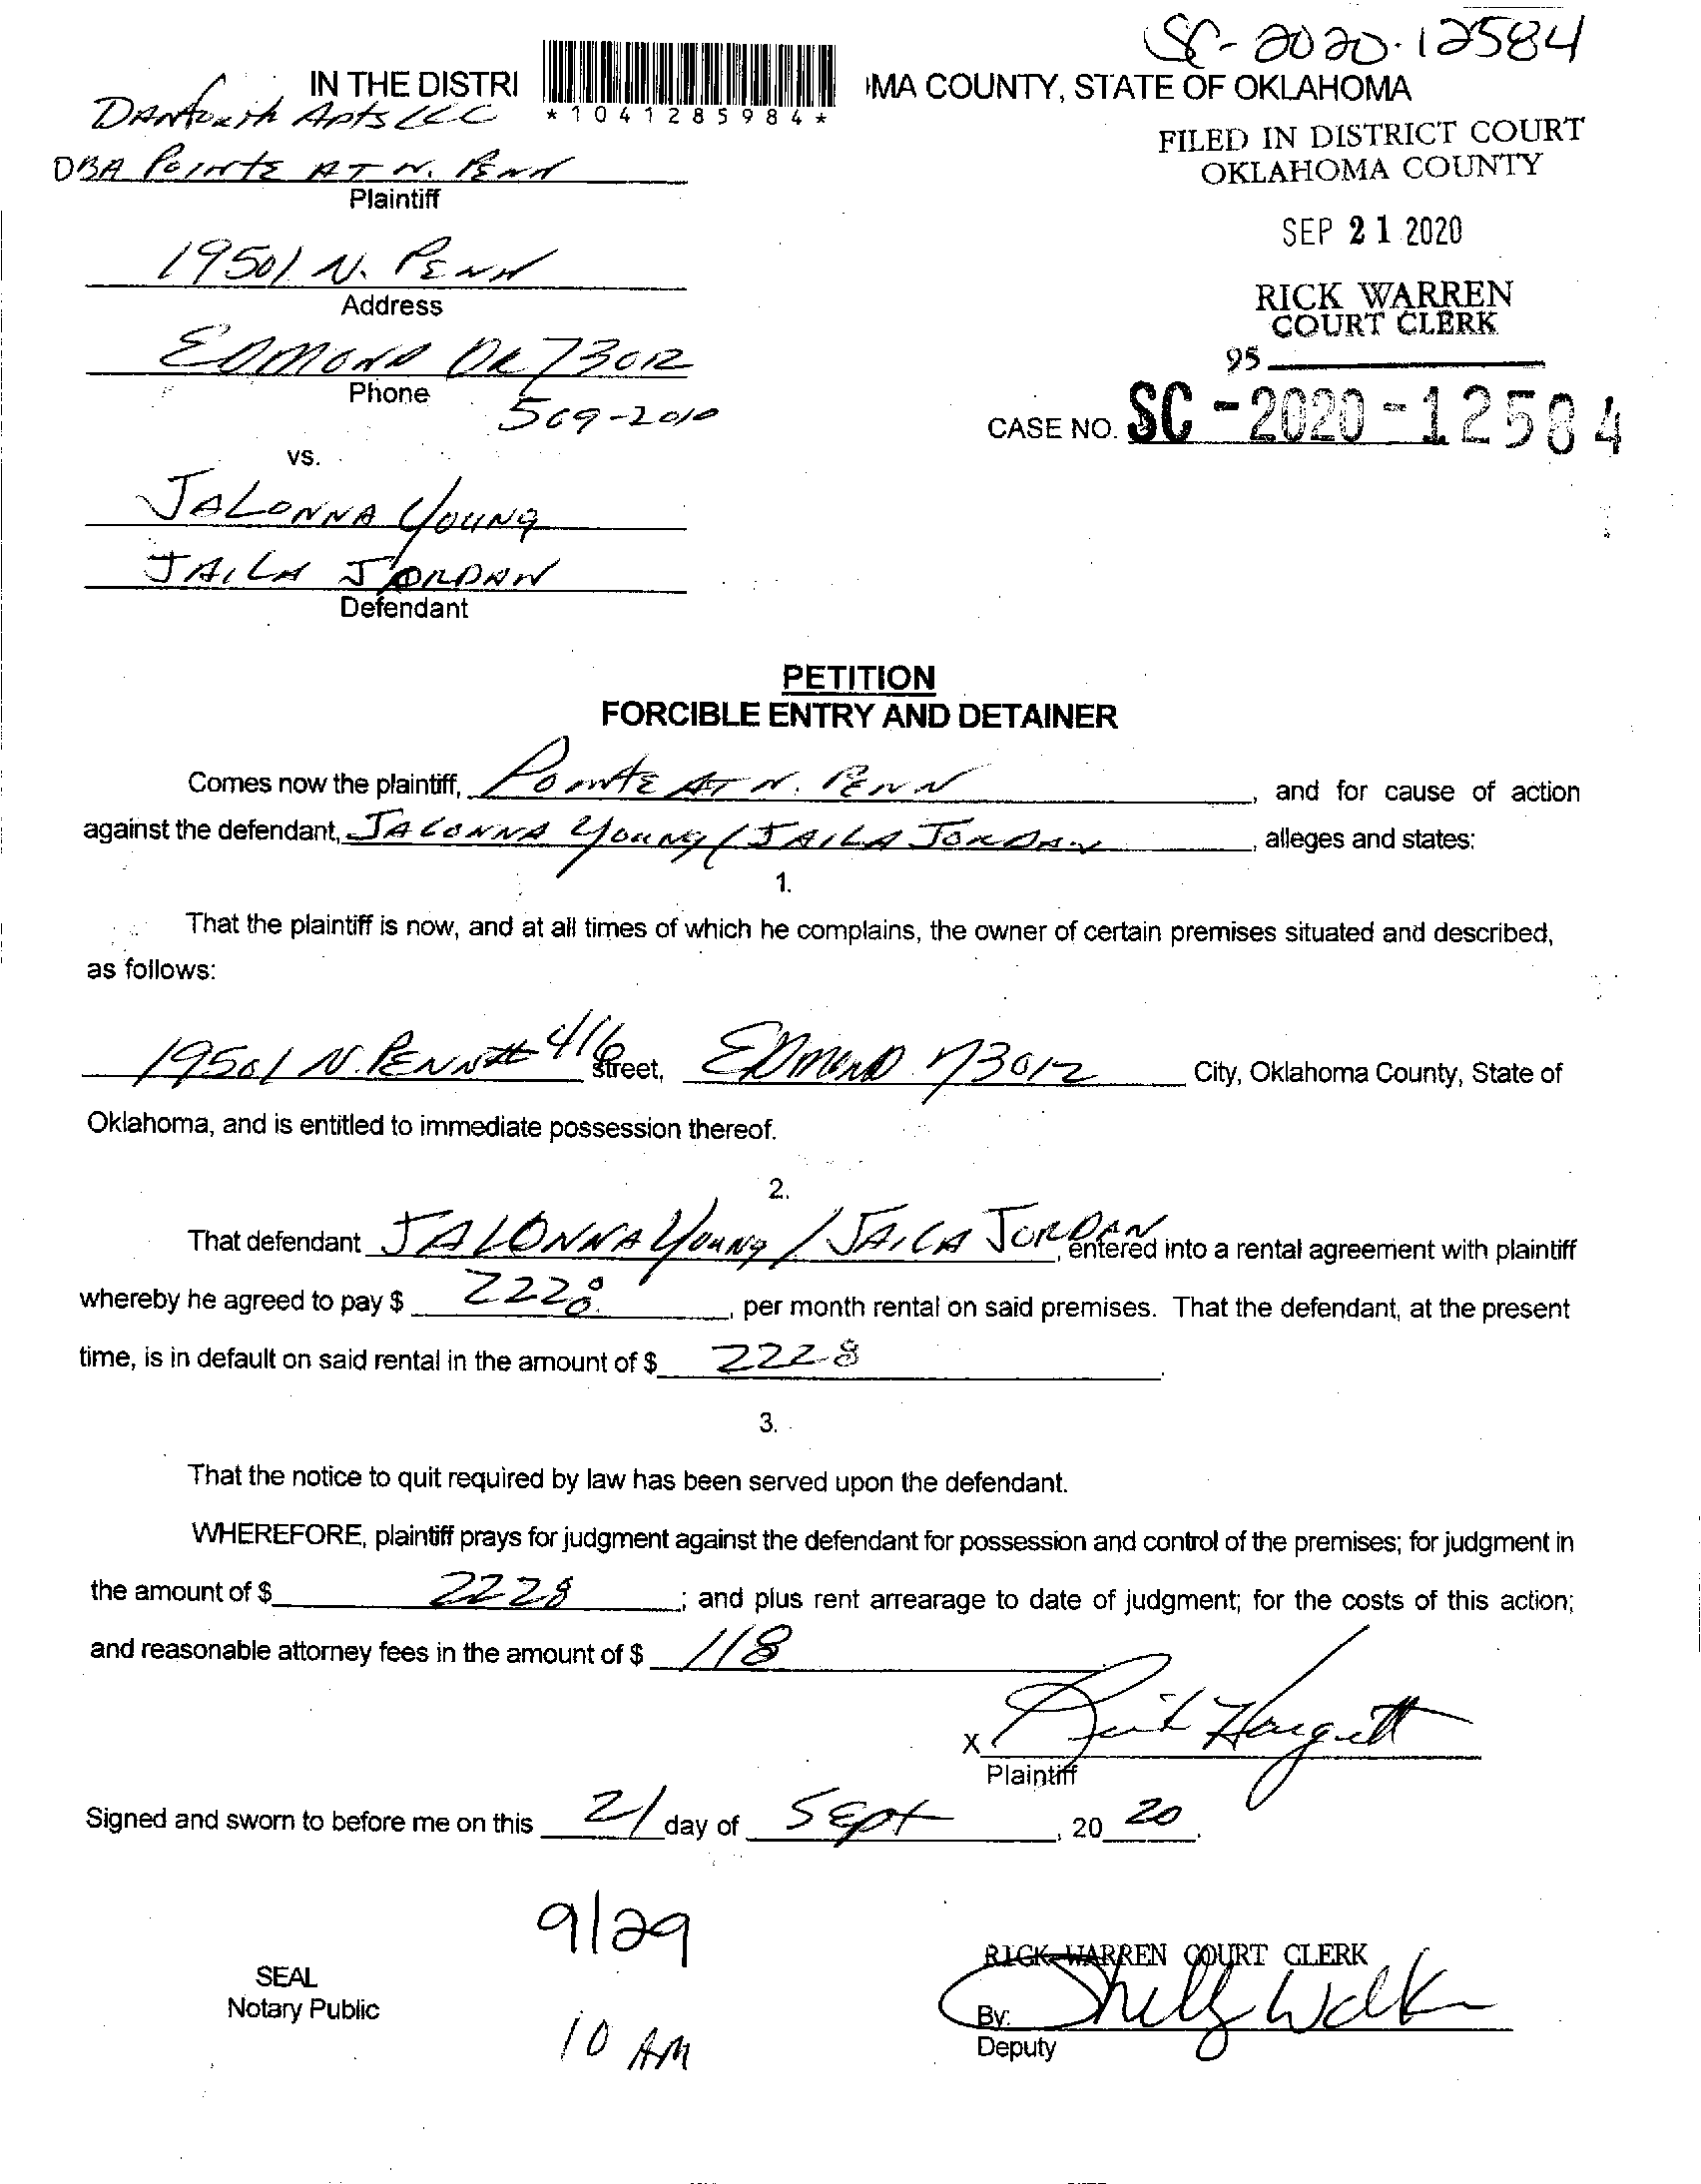 SC-2020-12584
IN THE DISTRI
*1041285984*
MA COUNTY, STATE OF OKLAHOMA
Danforth Apts LLC
FILED IN DISTRICT COURT
OKLAHOMA COUNTY
DBA Pointe AT N. Penn
Plaintiff
SEP 21 2020
19501 N. Penn
Address
RICK WARREN
COURT CLERK
Edmond OK 73012
95
Phone
569-2010
CASE NO. SC-2020-12584
vs.
JALONNA YOUNG
JAILA JORDAN
Defendant
PETITION
FORCIBLE ENTRY AND DETAINER
Comes now the plaintiff, Pointe AT N. Penn, and for cause of action
against the defendant, JALONNA Young / JAILA JORDAN, alleges and states:
1.
That the plaintiff is now, and at all times of which he complains, the owner of certain premises situated and described,
as follows:
19501 N. PENN # 416 street, Edmond 73012 City, Oklahoma County, State of
Oklahoma, and is entitled to immediate possession thereof.
2.
That defendant JALONNA Young / JAILA JORDAN, entered into a rental agreement with plaintiff
whereby he agreed to pay $ 2228, per month rental on said premises. That the defendant, at the present
time, is in default on said rental in the amount of $ 2228.
3.
That the notice to quit required by law has been served upon the defendant.
WHEREFORE, plaintiff prays for judgment against the defendant for possession and control of the premises; for judgment in
the amount of $ 2228; and plus rent arrearage to date of judgment; for the costs of this action;
and reasonable attorney fees in the amount of $ 118
X Hargett
Plaintiff
Signed and sworn to before me on this 21 day of Sept, 20 20.
9/29
RICK WARREN COURT CLERK
SEAL
Notary Public
By: Shelly Walk
10 AM
Deputy